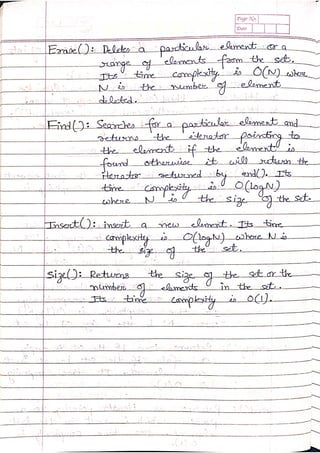 Page No.
Date
Erase(): Deletes a particular element or a
range of elements from the set.
Its time complexity is O(N) where
N is the number of element
deleted.
Find(): Searches for a particular element and
returns the iterator pointing to
the element if the element is
found otherwise it will return the
iterator returned by end(). Its
time complexity is O(logN)
where N is the size of the set.
Insert(): insert a new element. Its time
complexity is O(logN) where N is
the size of the set.
Size(): Returns the size of the set or the
number of elements in the set.
Its time complexity is O(1).